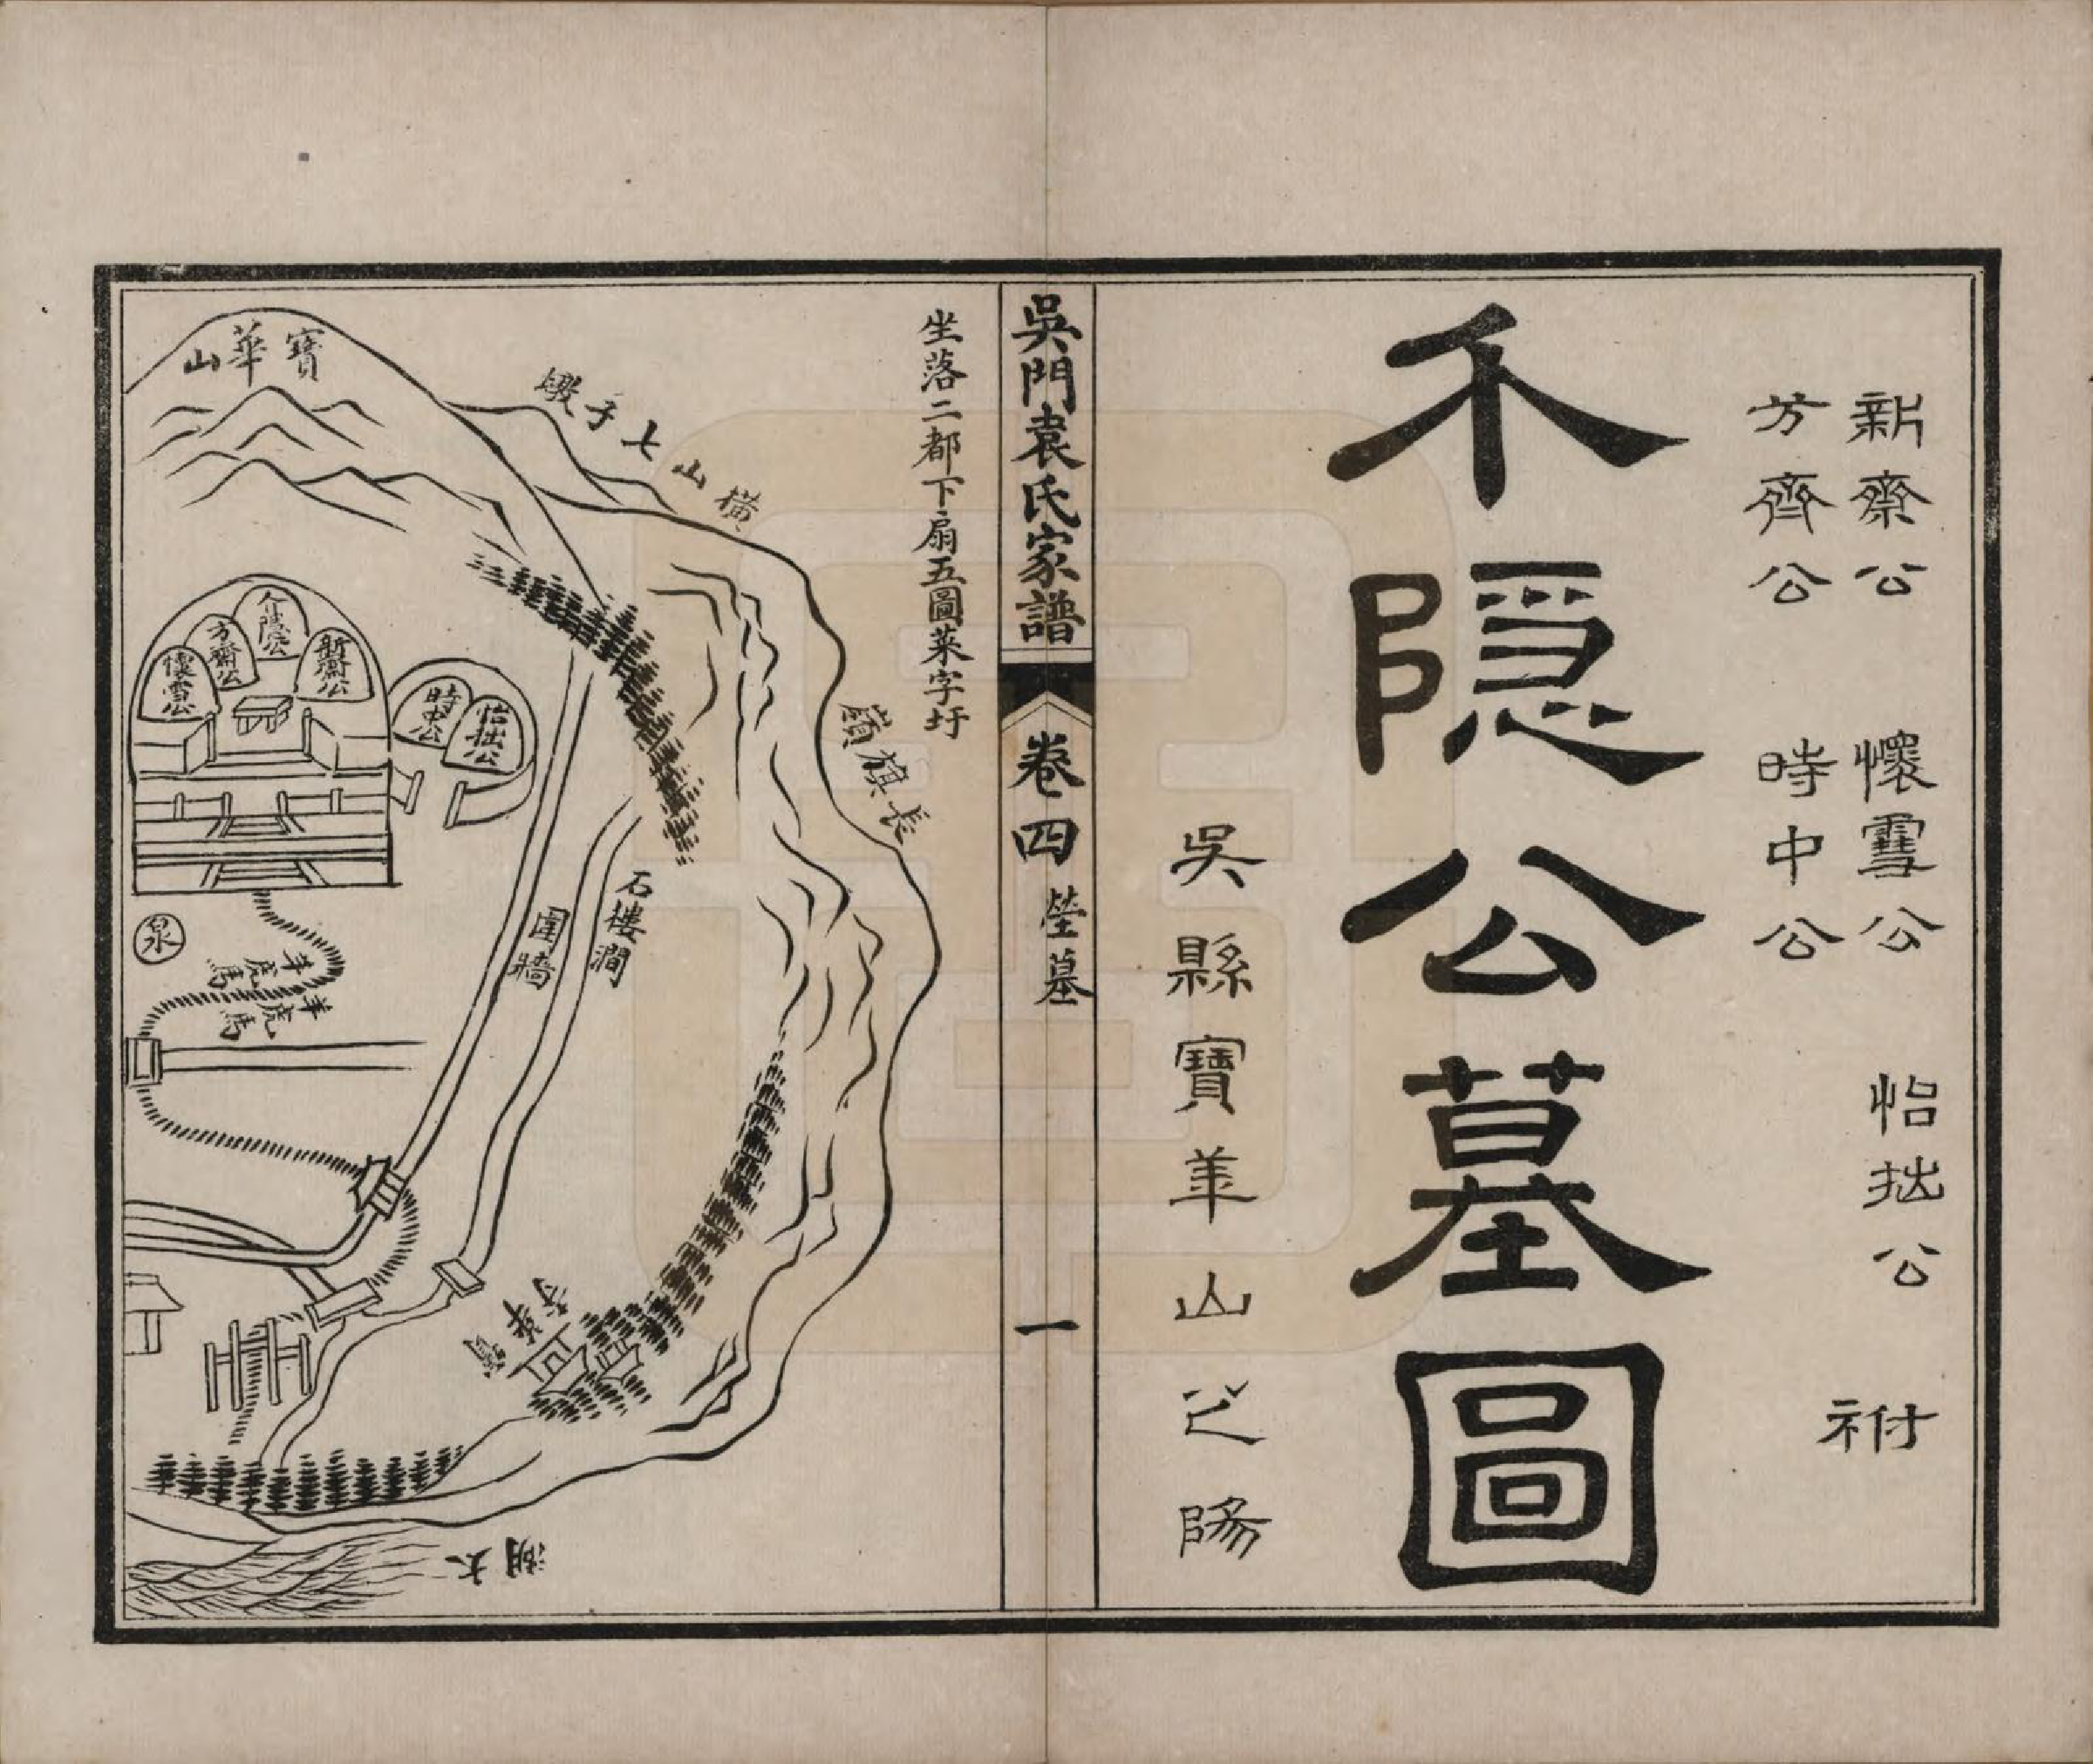 新齋公　懷雪公　怡拙公　祔
方齊公　時中公
介隱公墓圖
吳縣寶華山之陽
吳門袁氏家譜　卷四　塋墓　一
坐落二都下扇五圖萊字圩
寶華山
橫山七子墩
長旗嶺
介隱公
新齋公
方齋公
懷雪公
時中公
怡拙公
石樓澗
圍牆
泉
羊虎馬
羊虎馬
寶華寺
太湖